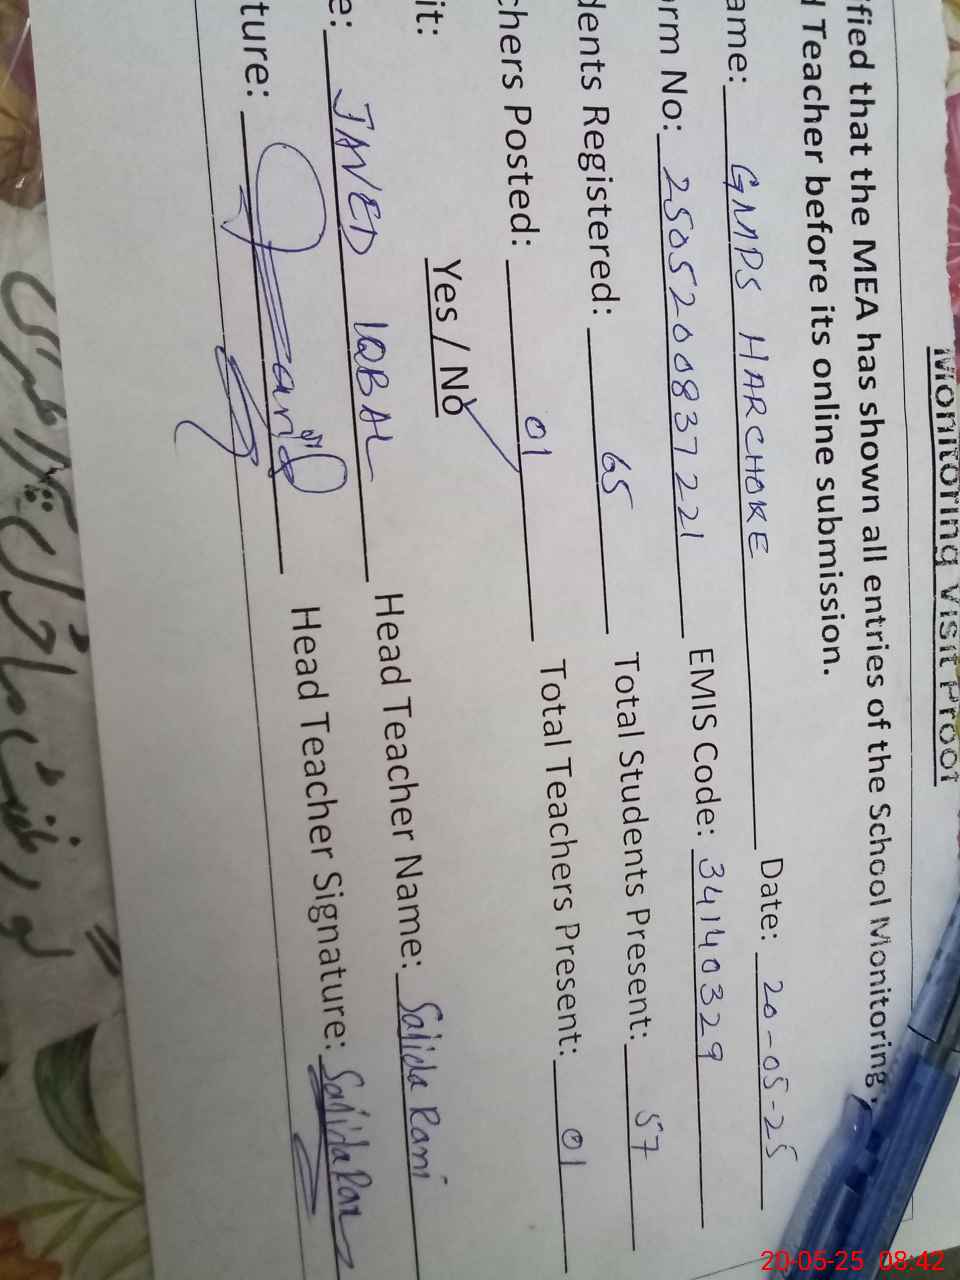 Monitoring Visit Proof
fied that the MEA has shown all entries of the School Monitoring
Teacher before its online submission.
ame: GMPS HARCHOKE Date: 20-05-25
orm No: 2505200837221 EMIS Code: 34140329
dents Registered: 65 Total Students Present: 57
chers Posted: 01 Total Teachers Present: 01
it: Yes / No
e: JAVED IQBAL Head Teacher Name: Sajida Rani
ture: Head Teacher Signature: Sajida Rani
20-05-25 08:42